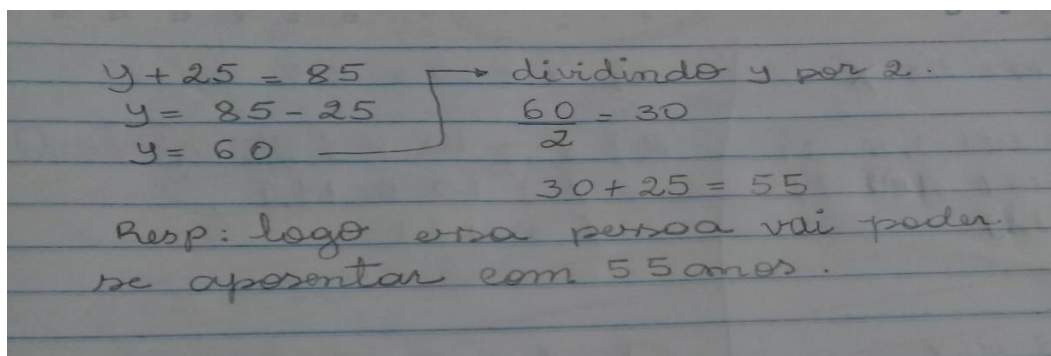 y + 25 = 85
y = 85 - 25
y = 60
→ dividindo y por 2.
60/2 = 30
30 + 25 = 55
Resp: logo essa pessoa vai poder
se aposentar com 55 anos.